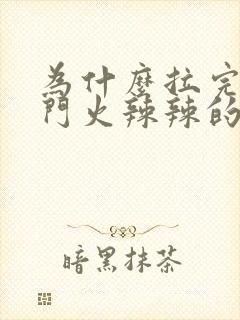 為什麼拉完
門火辣辣的
暗黑抹茶